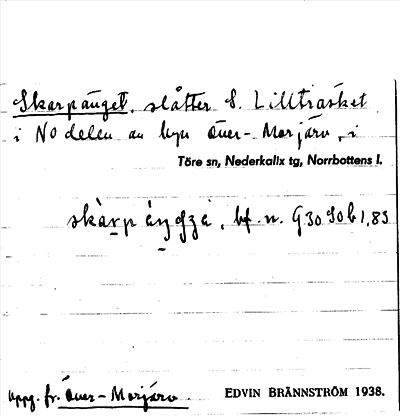 Skarpänget, slåtter S. Lillträsket
i NO delen av byn Över-Morjärv, i
Töre sn, Nederkalix tg, Norrbottens l.
bf. n.
Uppg. fr. Över-Morjärv EDVIN BRÄNNSTRÖM 1938.